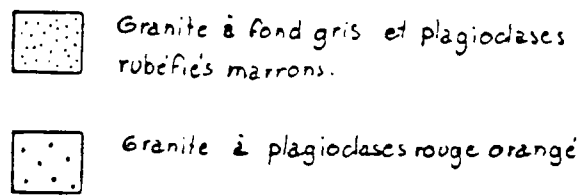 Granite à fond gris et plagioclases
rubéfiés marrons.
Granite à plagioclases rouge orangé